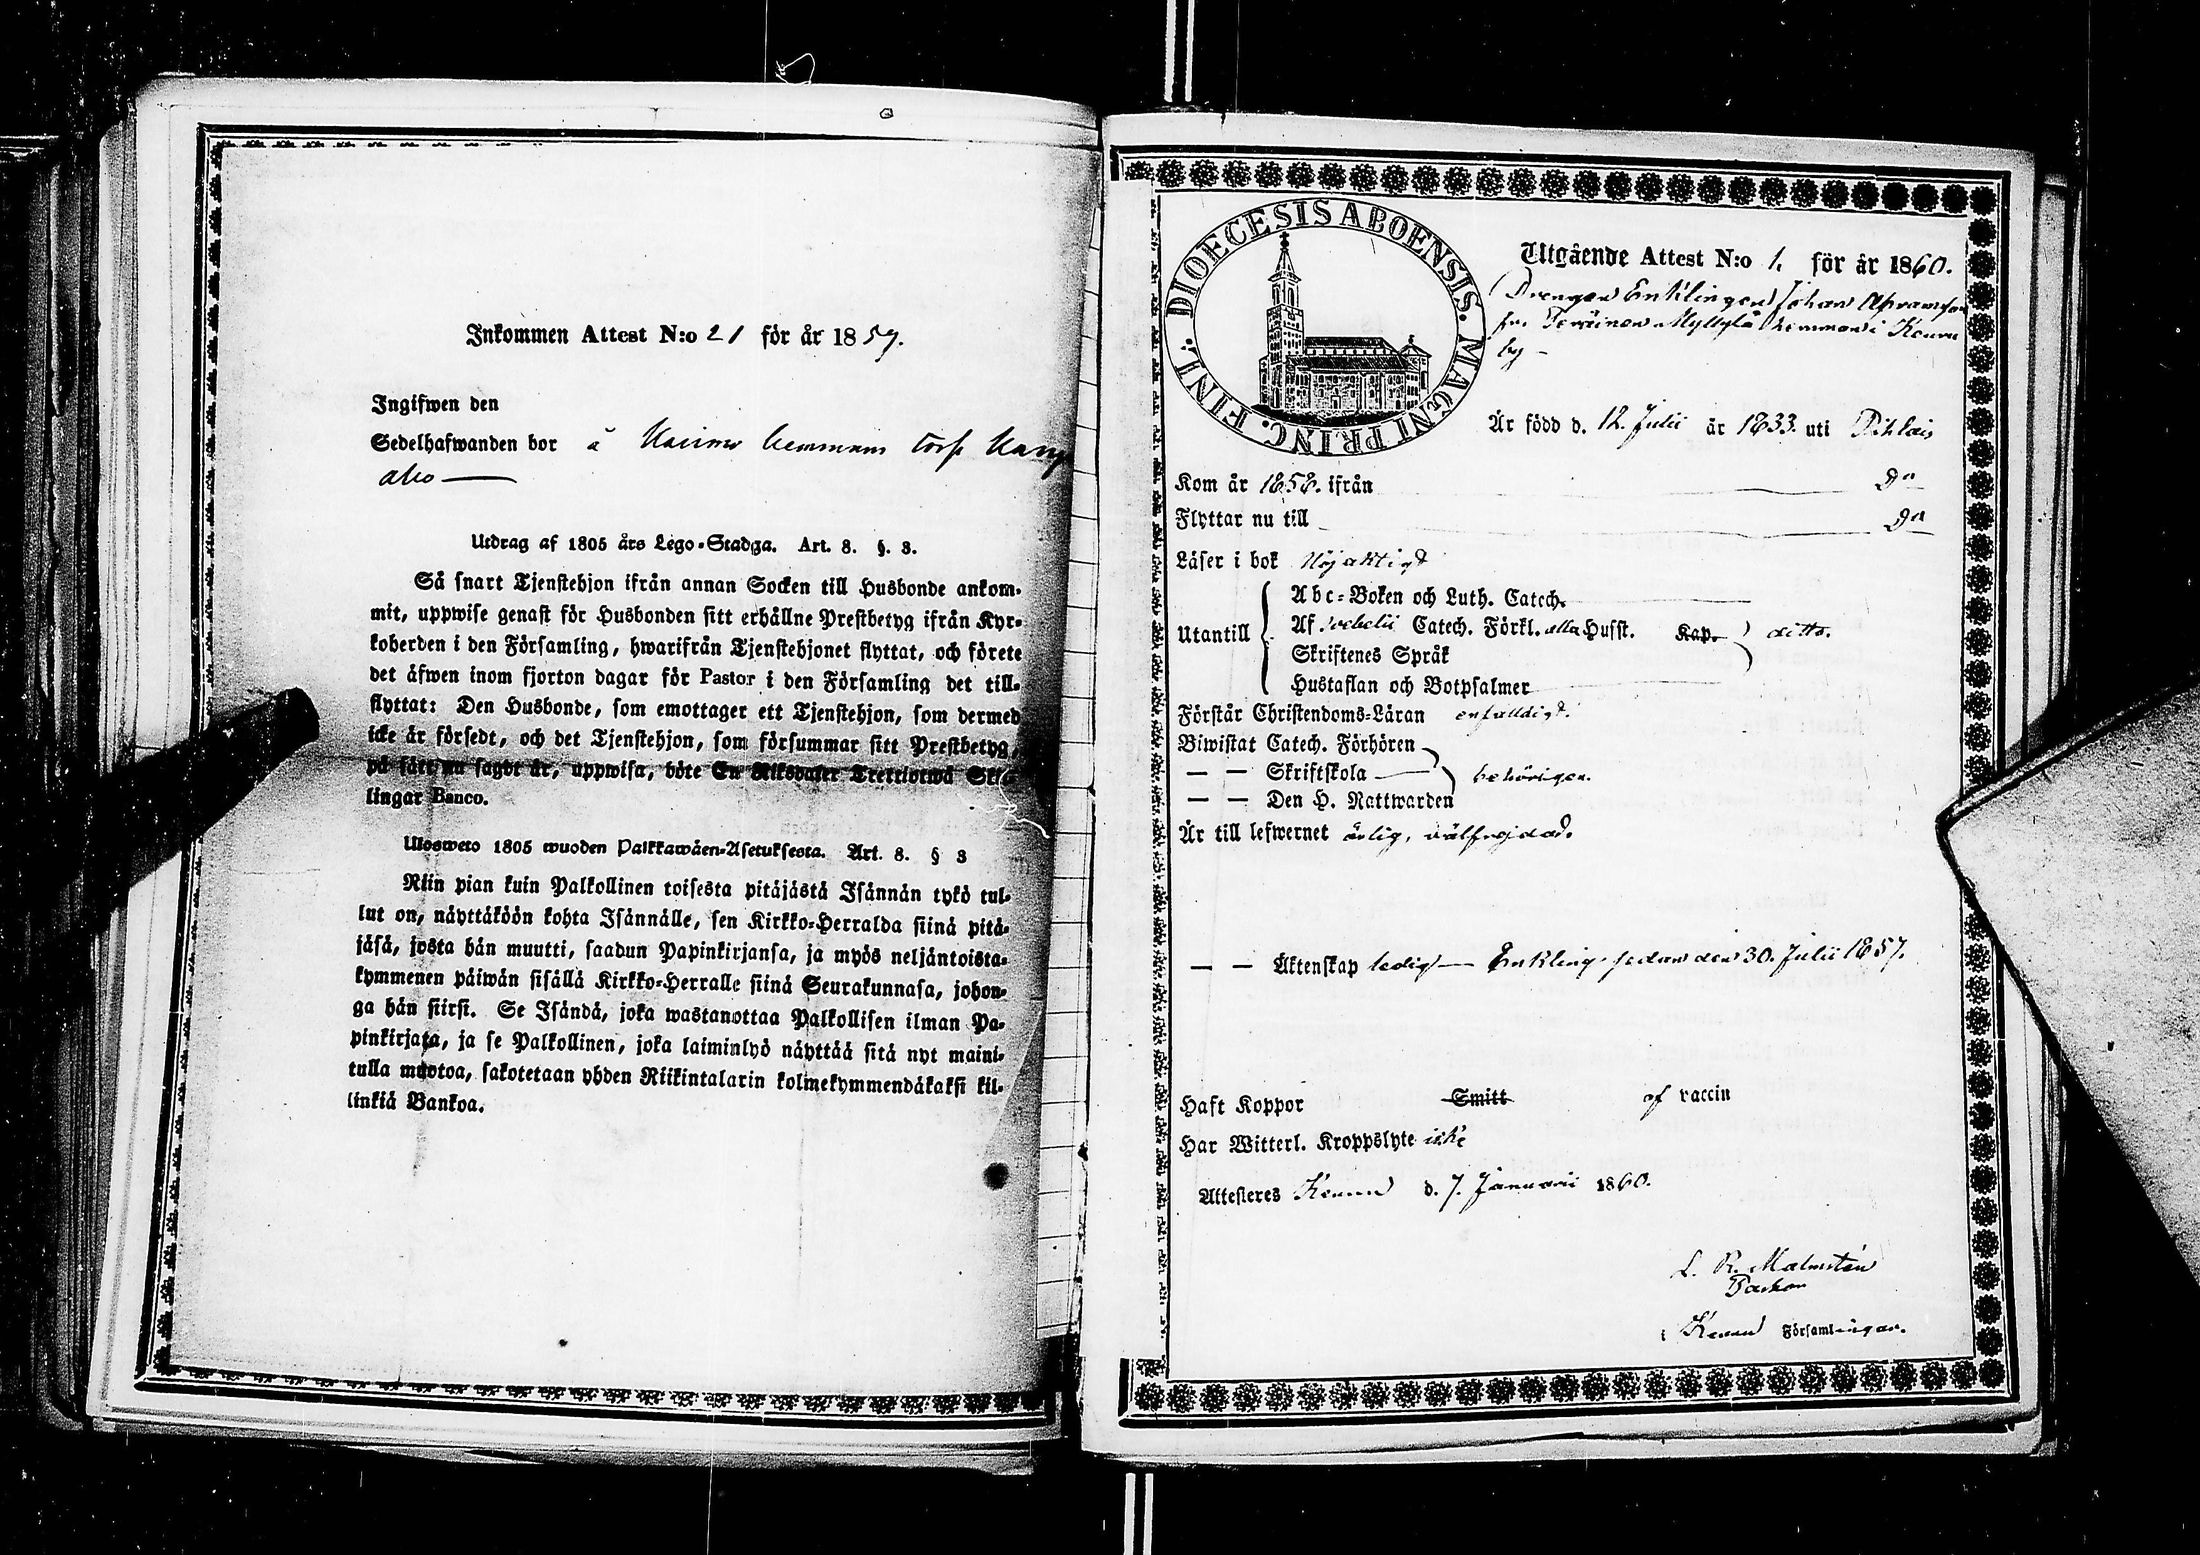 Inkommen Attest N:o 21 för år 1859.
Ingifwen den
Sedelhafwanden bor å hemmans torp
aho
Utdrag af 1805 års Lego-Stadga. Art. 8. §. 3.
Så snart Tjenstehjon ifrån annan Socken till Husbonde ankom-
mit, uppwise genast för Husbonden sitt erhållne Prestbetyg ifrån Kyr-
koherden i den Församling, hwarifrån Tjenstehjonet flyttat, och förete
det äfwen inom fjorton dagar för Pastor i den Församling det till-
flyttat: Den Husbonde, som emottager ett Tjenstehjon, som dermed
icke är försedt, och det Tjenstehjon, som försummar sitt Prestbetyg,
på sätt nu sagdt är, uppwisa, böte En Riksdaler Trettiotwå Skil-
lingar Banco.
Ulosweto 1805 wuoden Palkkawäen-Asetuksesta. Art. 8. § 3
Niin pian kuin Palkollinen toisesta pitäjästä Isännän tykö tul-
lut on, näyttäköön kohta Isännälle, sen Kirkko-Herralda siinä pitä-
jäsä, josta hän muutti, saadun Papinkirjansa, ja myös neljäntoista-
kymmenen päiwän sisällä Kirkko-Herralle siinä Seurakunnasa, johon-
ga hän siirsi. Se Isändä, joka wastanottaa Palkollisen ilman Pa-
pinkirjata, ja se Palkollinen, joka laiminlyö näyttää sitä nyt maini-
tulla muotoa, sakotetaan yhden Riikintalarin kolmekymmendäkaksi kil-
linkiä Bankoa.
DIOECESIS ABOENSIS. MAGNI PRINC. FINL.
Utgående Attest N:o 1. för år 1860.
Drengen Enklingen Johan Abramsson
fr. Myllylä hemman i Keuru
by
Är född d. 12. Julii år 1833. uti Pihlais
Kom år 1858. ifrån Do
Flyttar nu till Do
Läser i bok Nöjaktigt
Utantill
Abc-Boken och Luth. Catech.
Af Svebelii Catech. Förkl. alla Husst. Kap. ditto.
Skriftenes Språk
Hustaflan och Botpsalmer
Förstår Christendoms-Läran enfaldigt.
Biwistat Catech. Förhören
— — Skriftskola behörigen.
— — Den H. Nattwarden
Är till lefwernet ärlig, välfrejdad.
— — Äktenskap ledig — Enkling sedan den 30. Julii 1857.
Haft Koppor Smitt af vaccin
Har Witterl. Kroppslyte icke
Attesteres Keuru d. 7. Januarii 1860.
L. R. Malmstén
Pastor
i Keuru Församlingar.